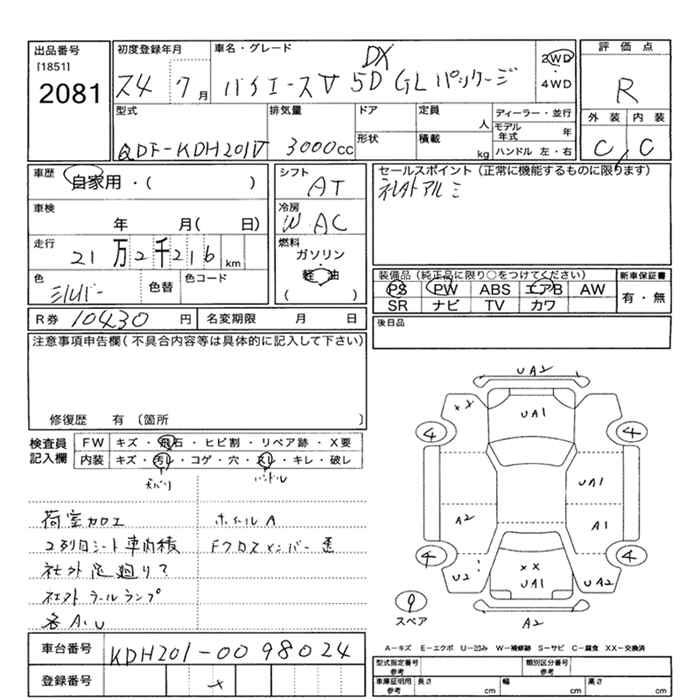 出品番号 初度登録年月 車名・グレード 評価点
[1851]
2081
ス4 7月 ハイエースV 5D DX GLパッケージ 2WD・4WD R
型式 排気量 ドア 定員 人 ディーラー・並行 外装 内装
QDF-KDH201V 3000cc 形状 積載 kg モデル年式 年 C C
ハンドル 左・右
車歴 自家用・( ) シフト AT セールスポイント(正常に機能するものに限ります)
社外アルミ
車検 年 月( 日) 冷房 W AC
走行 21万2千216km 燃料 ガソリン 軽油 ( )
色 シルバー 色替 色コード
装備品(純正品に限り○をつけてください) 新車保証書
PS PW ABS エアB AW 有・無
SR ナビ TV カワ
R券 10430円 名変期限 月 日 後日品
注意事項申告欄(不具合内容等は具体的に記入して下さい)
修復歴 有 (箇所 )
検査員記入欄 FW キズ・飛石・ヒビ割・リペア跡・X要
内装 キズ・汚レ・コゲ・穴・スレ・キレ・破レ
天バリ ハンドル
荷室加工 ホイールA
2列目シート車内積 Fクロスメンバー歪
社外足廻り?
社外テールランプ
各A.U
UA2
XX UA1
4 4
UA1
A2 A1
4 4
U2 XX UA1 UA2
9
スペア A2
A−キズ E−エクボ U−凹み W−補修跡 S−サビ C−腐食 XX−交換済
車台番号 KDH201-0098024
登録番号
型式指定番号 参考 類別区分番号 参考
車庫証明用 参考 長さ cm 幅 cm 高さ cm